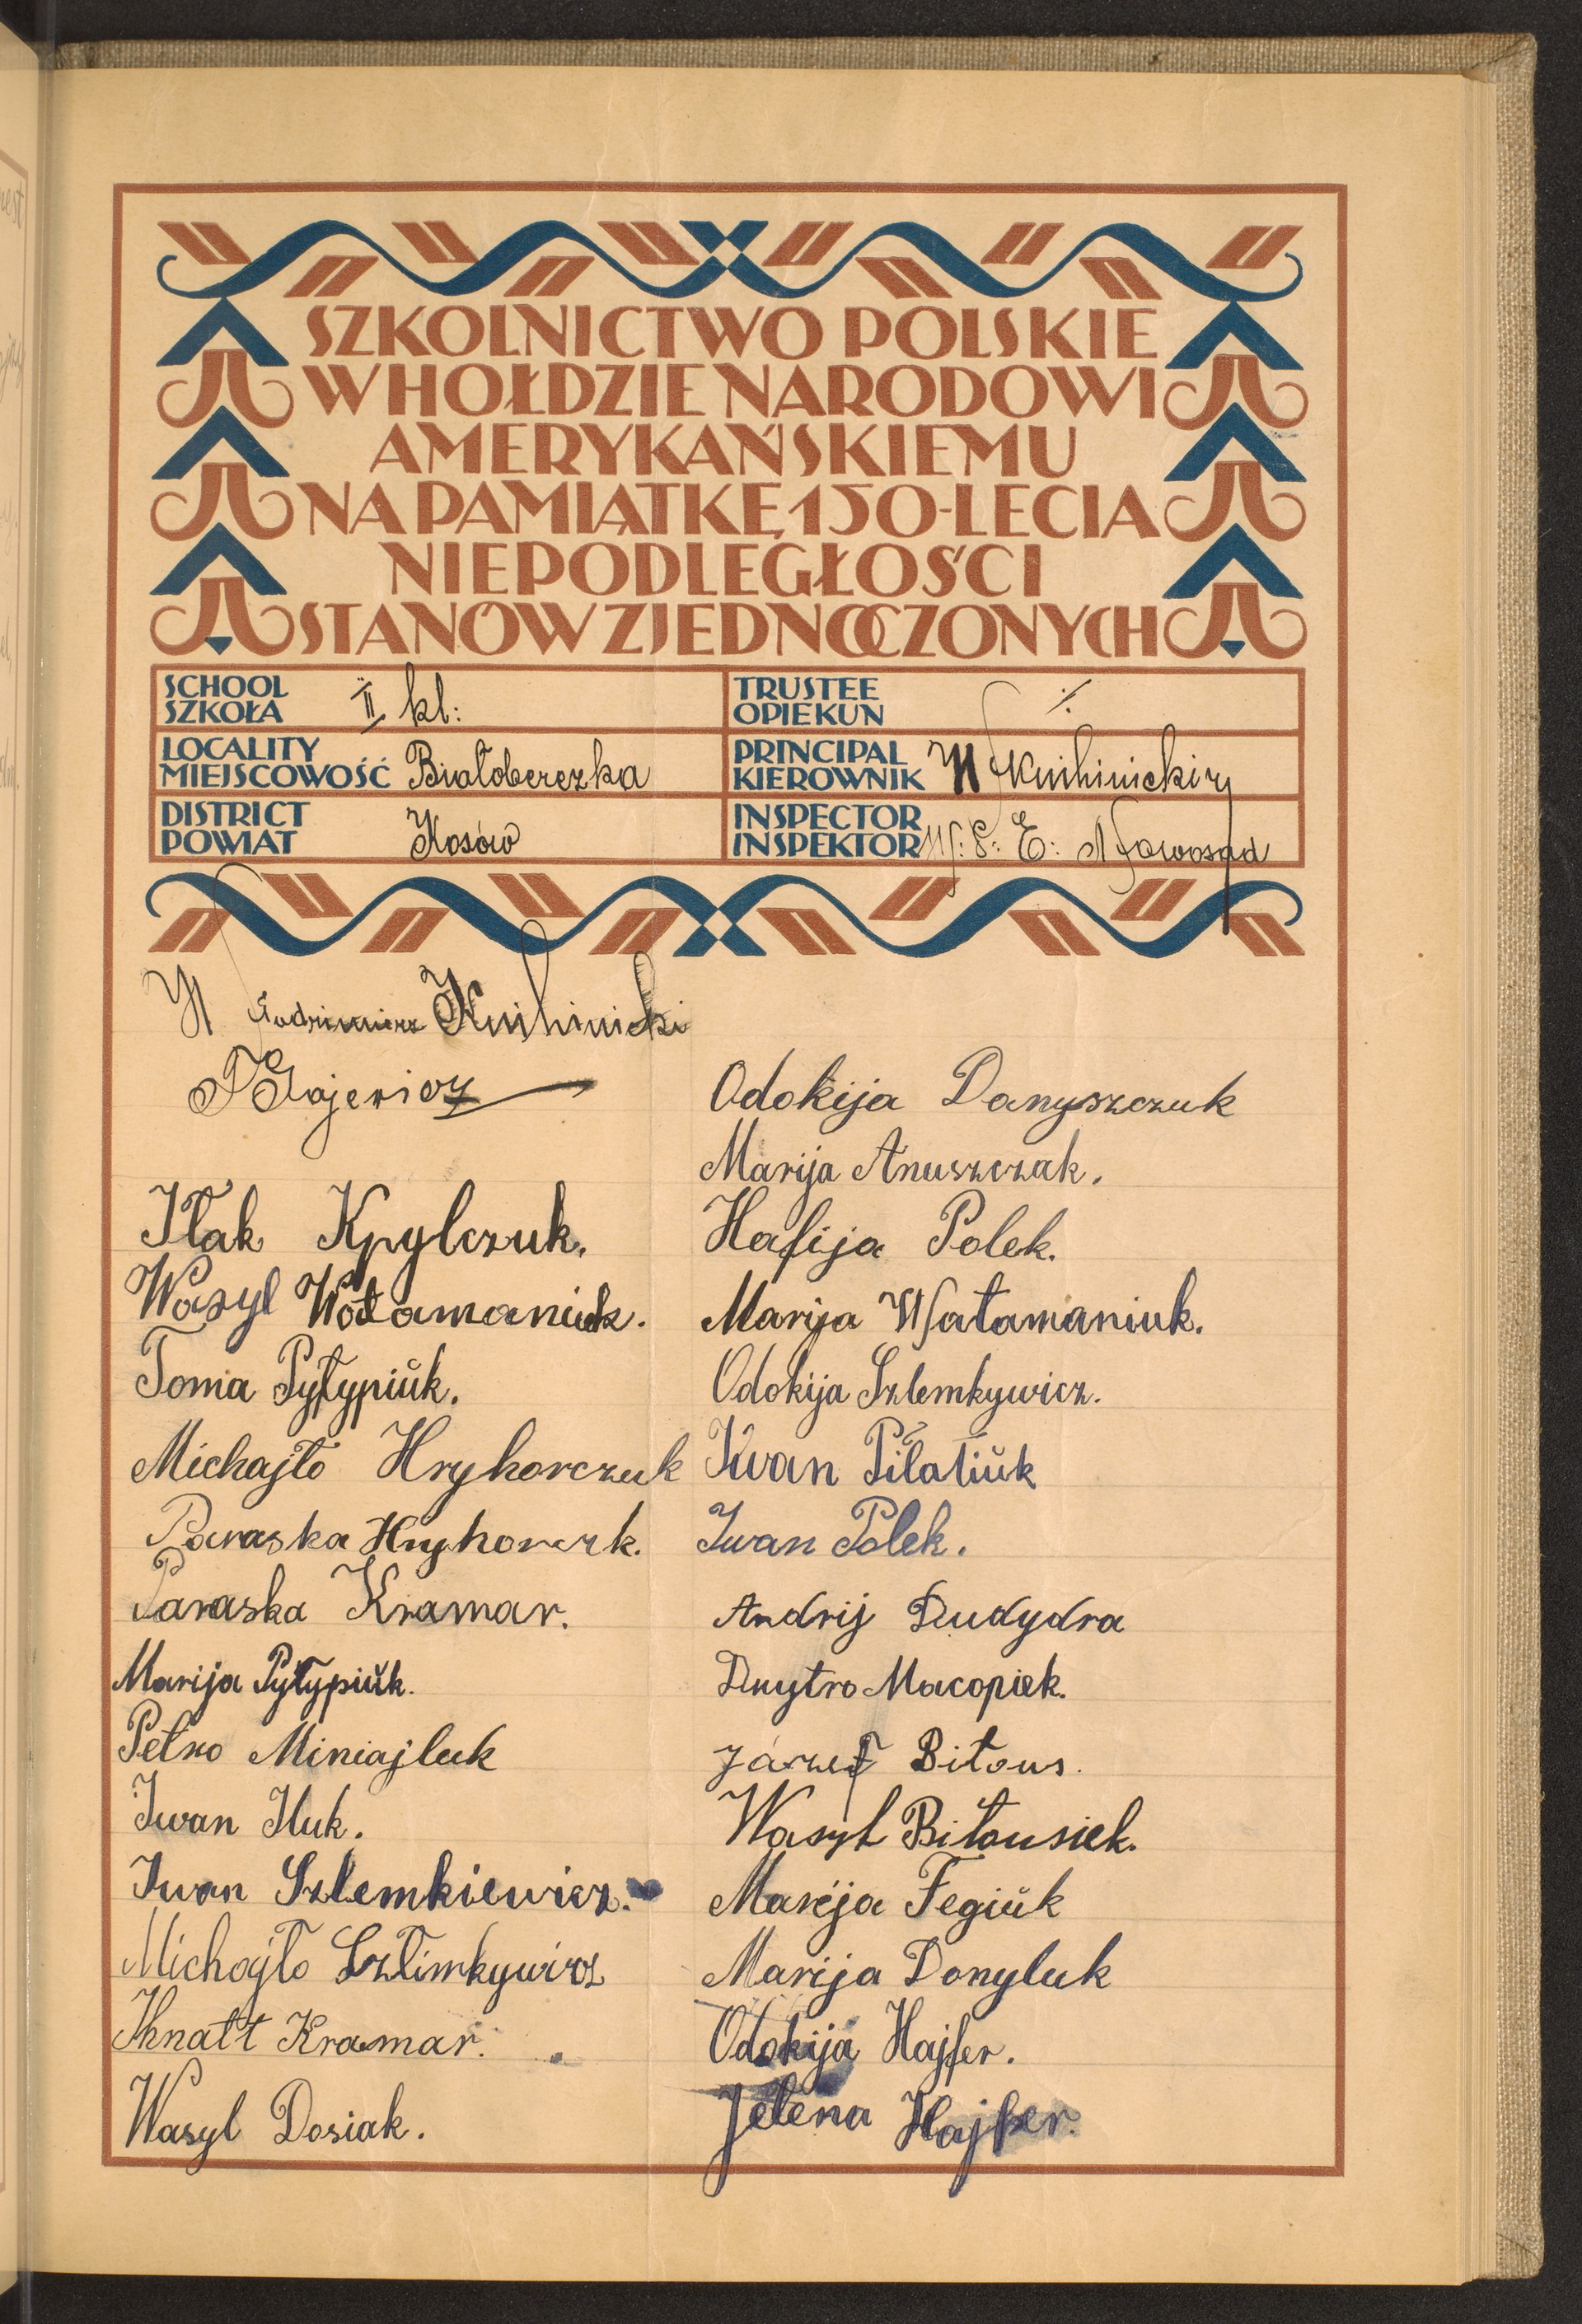 SZKOLNICTWO POLSKIE
W HOŁDZIE NARODOWI
AMERYKAŃSKIEMU
NA PAMIĄTKĘ 150-LECIA
NIEPODLEGŁOŚCI
STANÓW ZJEDNOCZONYCH
SCHOOL
SZKOŁA II kl:
TRUSTEE
OPIEKUN ⁒
LOCALITY
MIEJSCOWOŚĆ Białoberezka
PRINCIPAL
KIEROWNIK W Knihinicki
DISTRICT
POWIAT Kosów
INSPECTOR
INSPEKTOR E: Nowosad
Włodzimierz Knihinicki
Gajewicz
Iłak Kpylczuk.
Wasyl Wotamaniuk.
Toma Pyłypiŭk.
Michajło Hryhorczuk
Paraska Hryhorczk.
Paraska Kramar.
Marija Pyłypiŭk.
Petro Miniajluk
Iwan Huk.
Iwan Szlemkiewicz.
Michajło Szlimkywicz
Ihnatt Kramar.
Wasyl Dosiak.
Odokija Danyszczuk
Marija Anuszczak.
Hafija Polek.
Marija Watamaniuk.
Odokija Szlemkywicz.
Iwan Piłatiŭk
Iwan Polek.
Andrij Dudydra
Dmytro Macopiek.
Józef Biłous.
Wasyl Biłousiek.
Marija Fegiŭk
Marija Donyluk
Odokija Hajfer.
Jełena Hajfer.